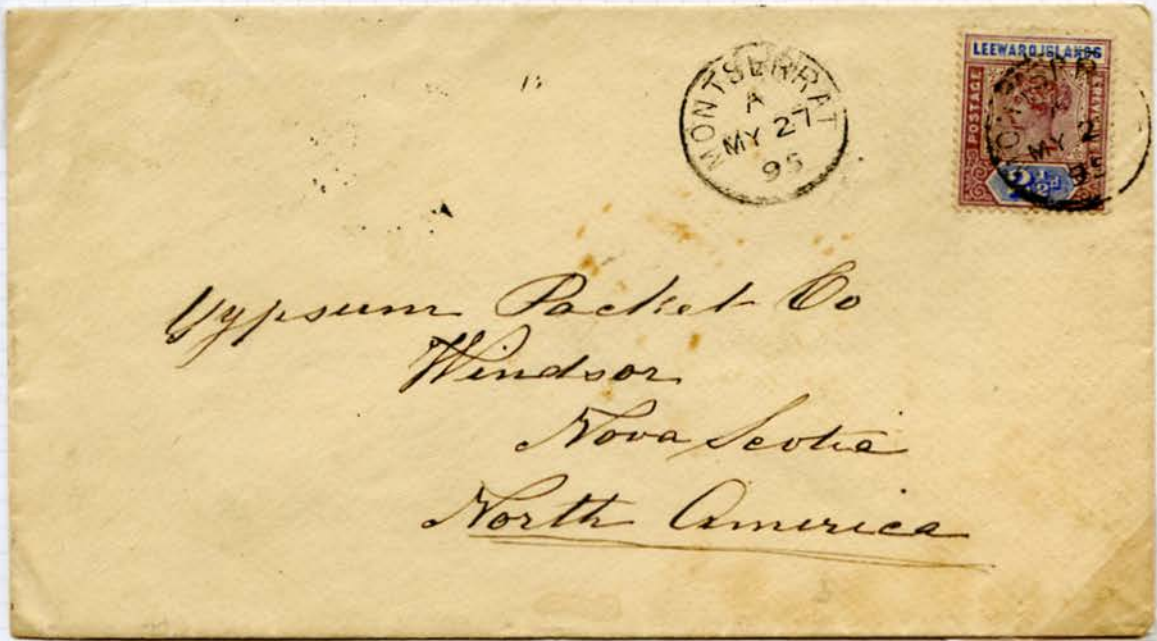 MONTSERRAT
A
MY 27
95
LEEWARD ISLANDS
POSTAGE
2½d
MY 2
95
Gypsum Packet Co
Windsor
Nova Scotia
North America